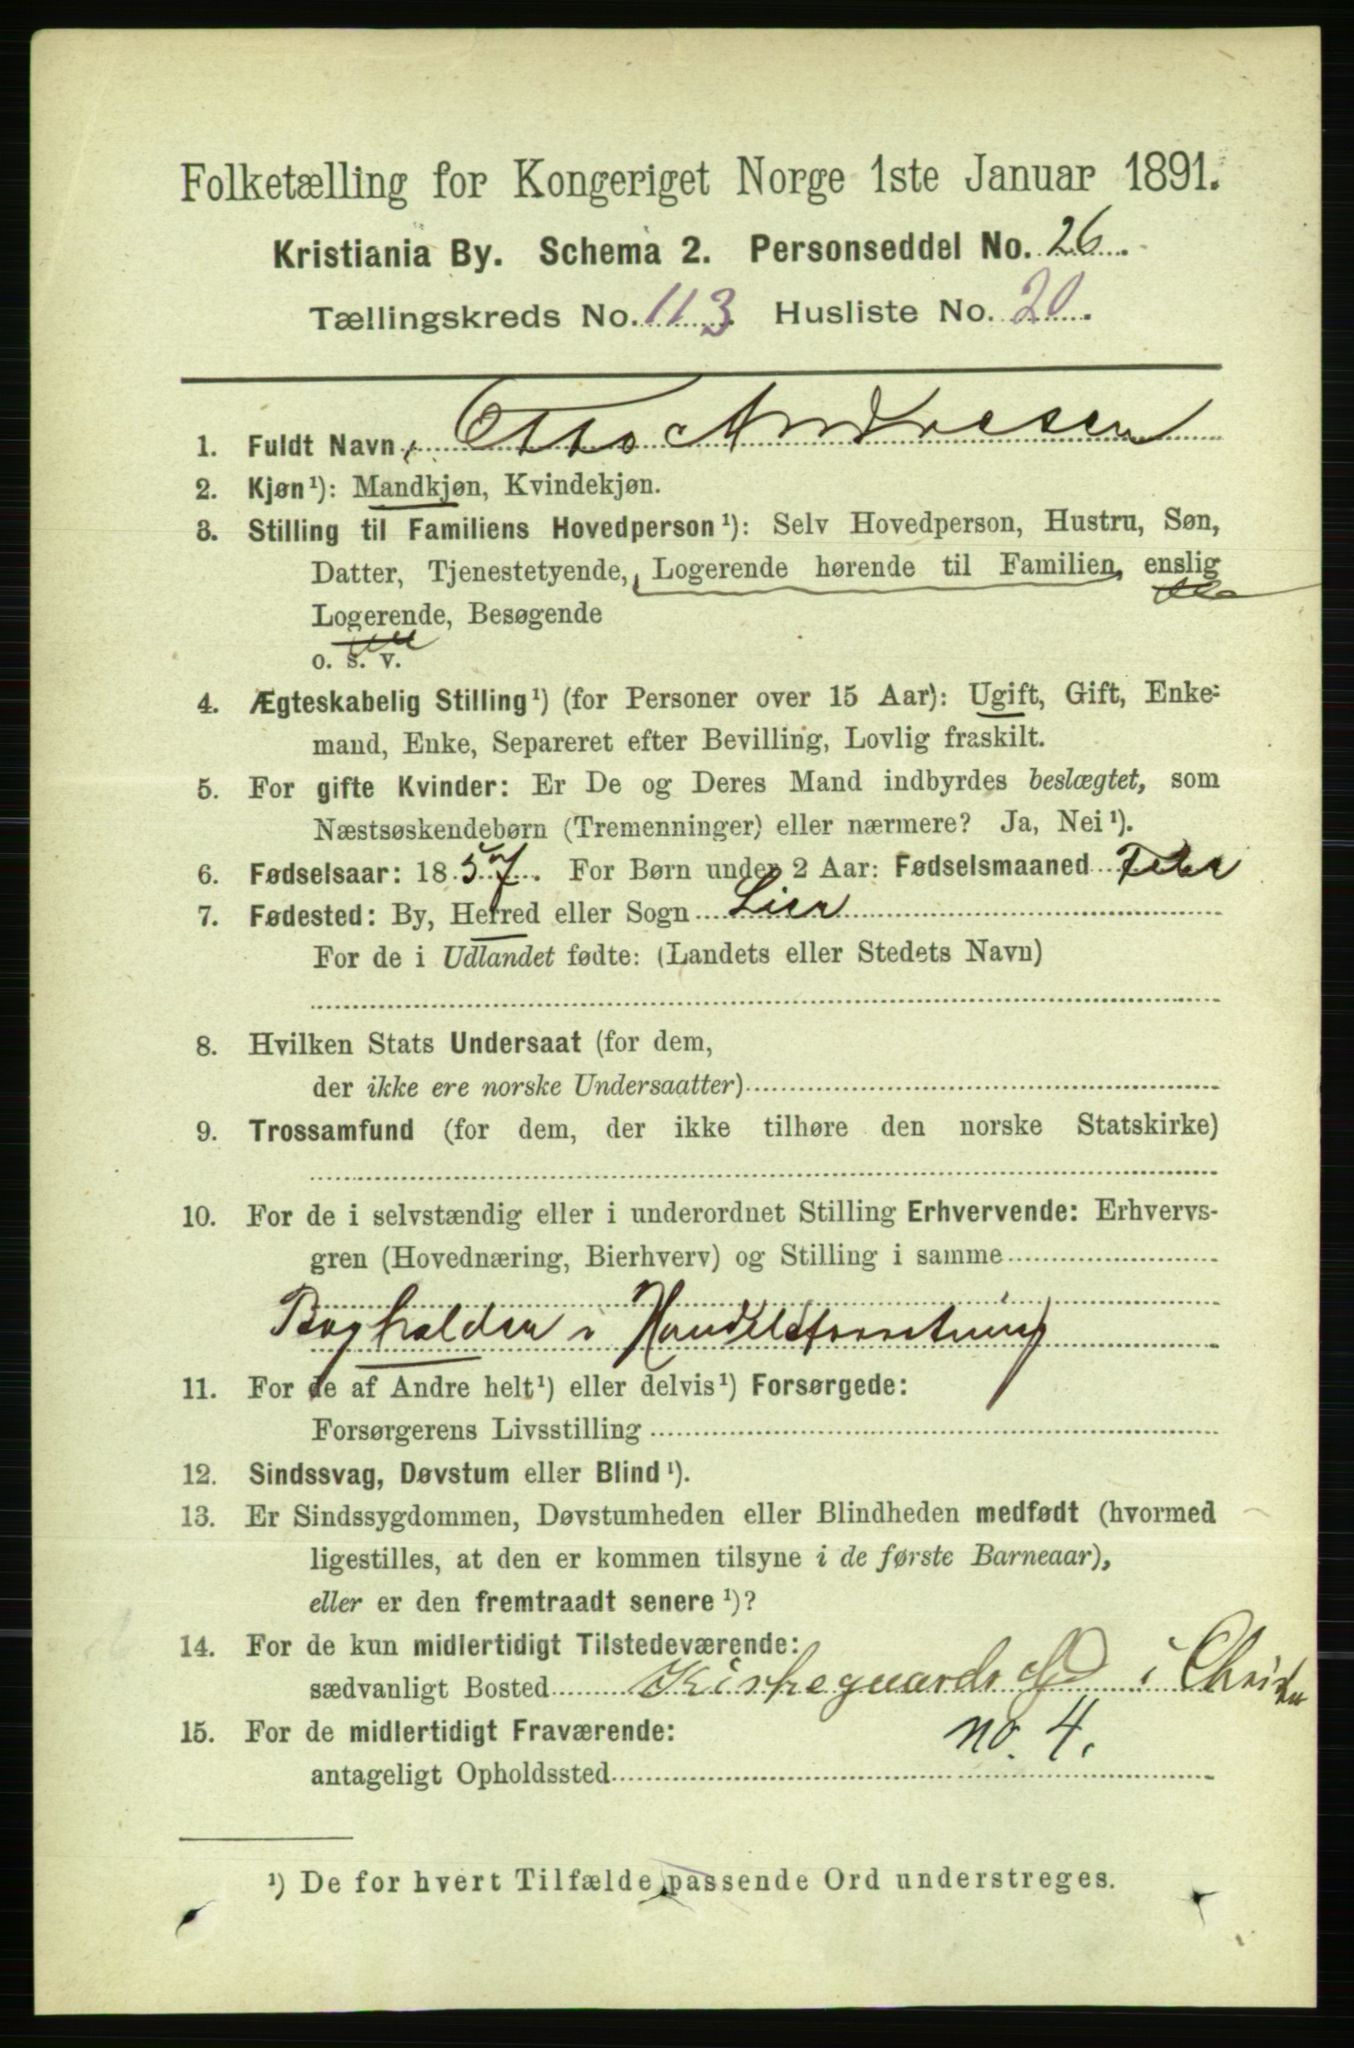 Folketælling for Kongeriget Norge 1ste Januar 1891.
Kristiania By. Schema 2. Personseddel No. 26.
Tællingskreds No. 113 Husliste No. 20.
1. Fuldt Navn, Otto Andresen
2. Kjøn¹): Mandkjøn, Kvindekjøn.
3. Stilling til Familiens Hovedperson¹): Selv Hovedperson, Hustru, Søn,
Datter, Tjenestetyende, Logerende hørende til Familien, enslig
Logerende, Besøgende
o. s. v.
4. Ægteskabelig Stilling¹) (for Personer over 15 Aar): Ugift, Gift, Enke-
mand, Enke, Separeret efter Bevilling, Lovlig fraskilt.
5. For gifte Kvinder: Er De og Deres Mand indbyrdes beslægtet, som
Næstsøskendebørn (Tremenninger) eller nærmere? Ja, Nei¹).
6. Fødselsaar: 1857. For Børn under 2 Aar: Fødselsmaaned Febr
7. Fødested: By, Herred eller Sogn Lier
For de i Udlandet fødte: (Landets eller Stedets Navn)
8. Hvilken Stats Undersaat (for dem,
der ikke ere norske Undersaatter)
9. Trossamfund (for dem, der ikke tilhøre den norske Statskirke)
10. For de i selvstændig eller i underordnet Stilling Erhvervende: Erhvervs-
gren (Hovednæring, Bierhverv) og Stilling i samme
Bogholder i Handelsforretning
11. For de af Andre helt¹) eller delvis¹) Forsørgede:
Forsørgerens Livsstilling
12. Sindssvag, Døvstum eller Blind¹).
13. Er Sindssygdommen, Døvstumheden eller Blindheden medfødt (hvormed
ligestilles, at den er kommen tilsyne i de første Barneaar),
eller er den fremtraadt senere¹)?
14. For de kun midlertidigt Tilstedeværende:
sædvanligt Bosted Kirkegaards i
15. For de midlertidigt Fraværende: no. 4.
antageligt Opholdssted
¹) De for hvert Tilfælde passende Ord understreges.